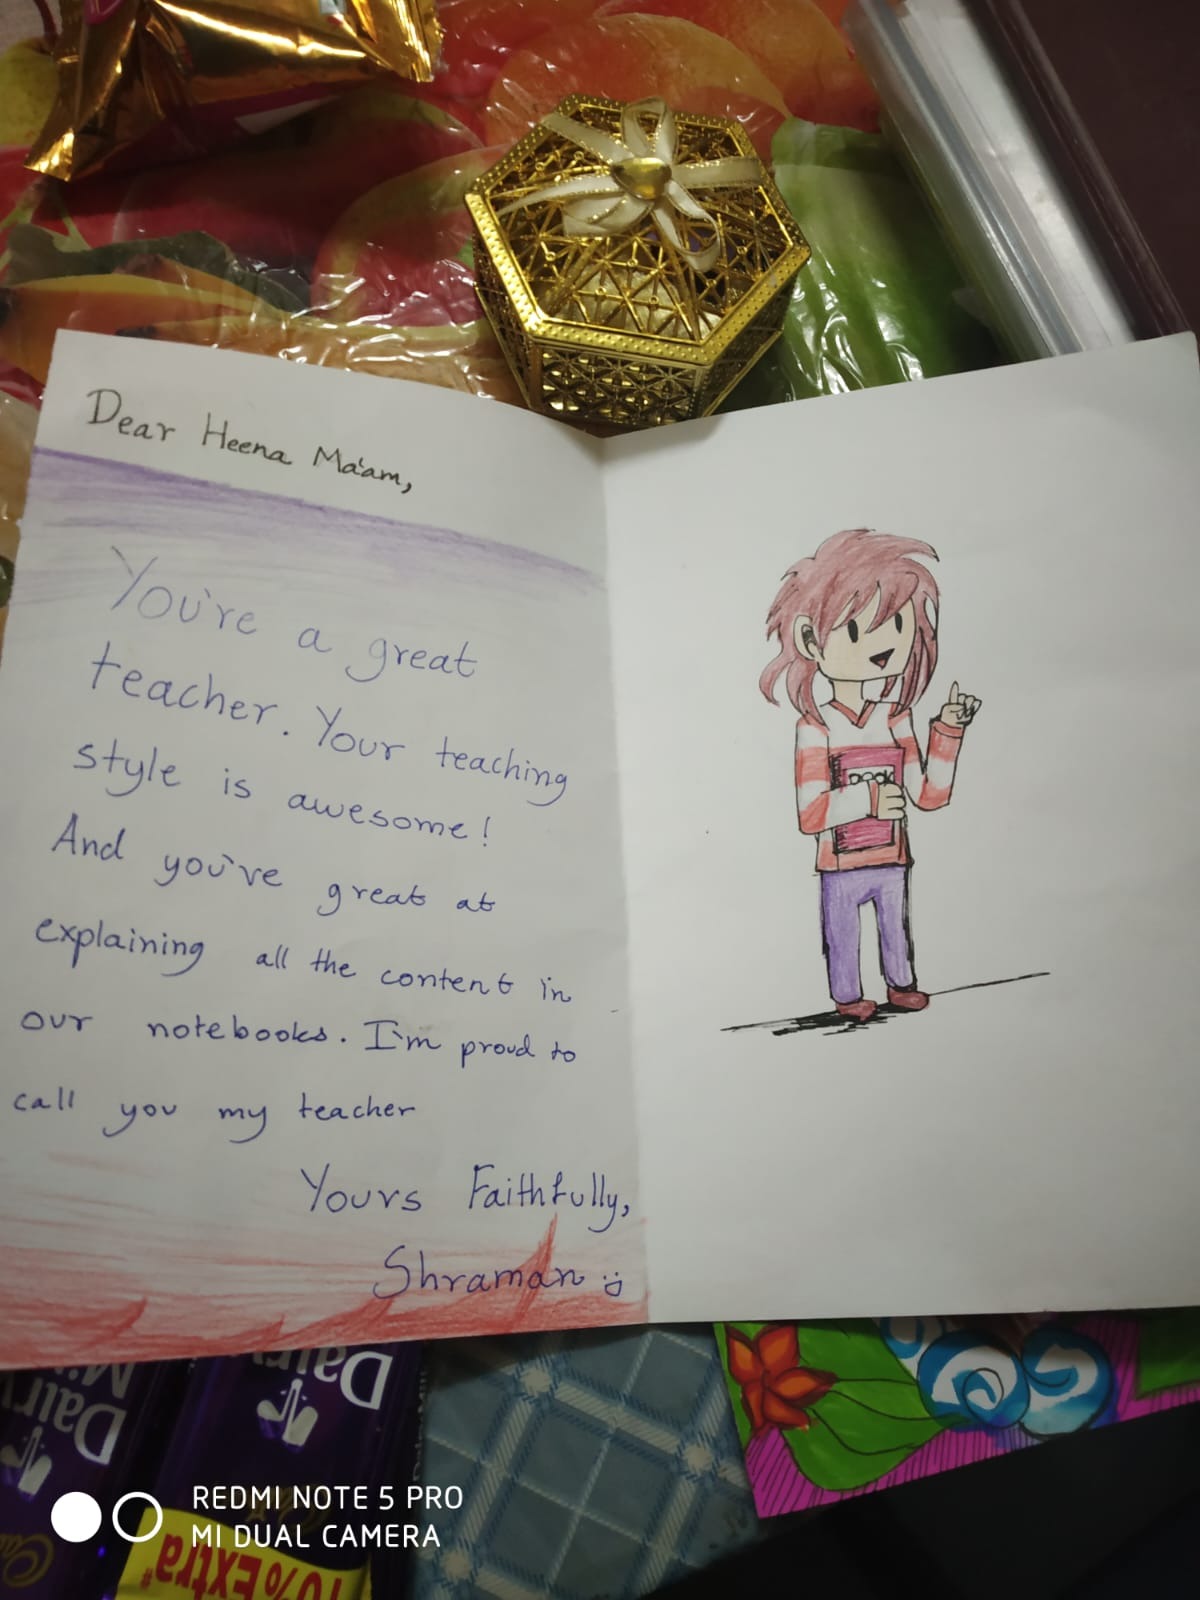 Dear Heena Ma'am,
You're a great
teacher. Your teaching
style is awesome!
And you've great at
explaining all the content in
our notebooks. I'm proud to
call you my teacher
Yours Faithfully,
Shraman
BOOK
Dairy
Milk
Dairy
10% Extra
REDMI NOTE 5 PRO
MI DUAL CAMERA